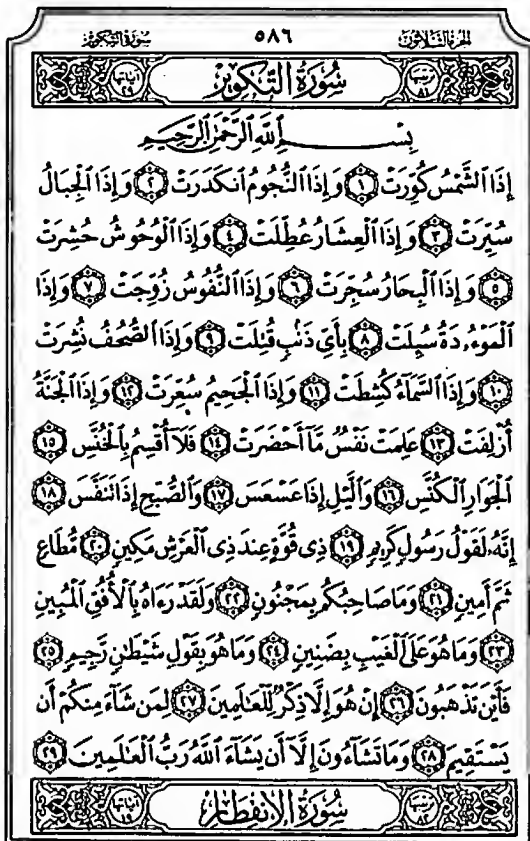 الجزء الثلاثون ٥٨٦ سورة التكوير
ترتيبها ٨١ سُورَةُ التَّكْوِيرِ آياتها ٢٩
بِسْمِ اللَّهِ الرَّحْمَٰنِ الرَّحِيمِ
إِذَا الشَّمْسُ كُوِّرَتْ ١ وَإِذَا النُّجُومُ انكَدَرَتْ ٢ وَإِذَا الْجِبَالُ
سُيِّرَتْ ٣ وَإِذَا الْعِشَارُ عُطِّلَتْ ٤ وَإِذَا الْوُحُوشُ حُشِرَتْ
٥ وَإِذَا الْبِحَارُ سُجِّرَتْ ٦ وَإِذَا النُّفُوسُ زُوِّجَتْ ٧ وَإِذَا
الْمَوْءُۥدَةُ سُئِلَتْ ٨ بِأَيِّ ذَنۢبٍ قُتِلَتْ ٩ وَإِذَا الصُّحُفُ نُشِرَتْ
١٠ وَإِذَا السَّمَآءُ كُشِطَتْ ١١ وَإِذَا الْجَحِيمُ سُعِّرَتْ ١٢ وَإِذَا الْجَنَّةُ
أُزْلِفَتْ ١٣ عَلِمَتْ نَفْسٌ مَّآ أَحْضَرَتْ ١٤ فَلَآ أُقْسِمُ بِالْخُنَّسِ ١٥
الْجَوَارِ الْكُنَّسِ ١٦ وَالَّيْلِ إِذَا عَسْعَسَ ١٧ وَالصُّبْحِ إِذَا تَنَفَّسَ ١٨
إِنَّهُۥ لَقَوْلُ رَسُولٍ كَرِيمٍ ١٩ ذِي قُوَّةٍ عِندَ ذِي الْعَرْشِ مَكِينٍ ٢٠ مُّطَاعٍ
ثَمَّ أَمِينٍ ٢١ وَمَا صَاحِبُكُم بِمَجْنُونٍ ٢٢ وَلَقَدْ رَءَاهُ بِالْأُفُقِ الْمُبِينِ
٢٣ وَمَا هُوَ عَلَى الْغَيْبِ بِضَنِينٍ ٢٤ وَمَا هُوَ بِقَوْلِ شَيْطَٰنٍ رَّجِيمٍ ٢٥
فَأَيْنَ تَذْهَبُونَ ٢٦ إِنْ هُوَ إِلَّا ذِكْرٌ لِّلْعَٰلَمِينَ ٢٧ لِمَن شَآءَ مِنكُمْ أَن
يَسْتَقِيمَ ٢٨ وَمَا تَشَآءُونَ إِلَّآ أَن يَشَآءَ اللَّهُ رَبُّ الْعَٰلَمِينَ ٢٩
ترتيبها ٨٢ سُورَةُ الِانفِطَارِ آياتها ١٩